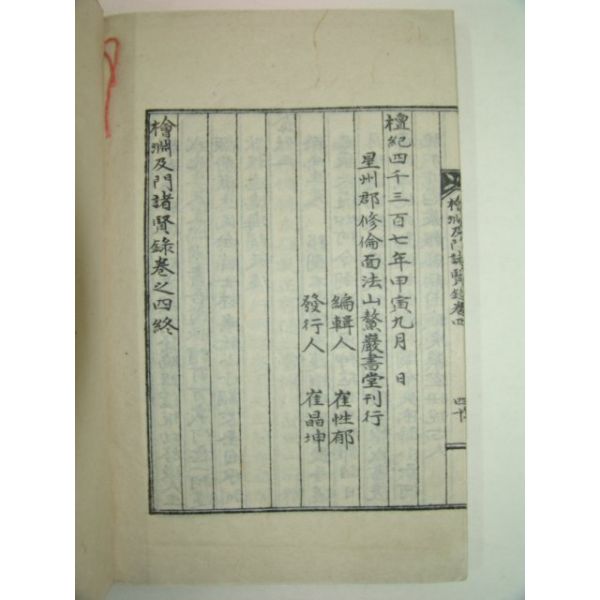 檜淵及門諸賢錄卷四
四十
檀紀四千三百七年甲寅九月 日
星州郡修倫面法山鰲巖書堂刊行
編輯人 崔性郁
發行人 崔晶坤
檜淵及門諸賢錄卷之四終